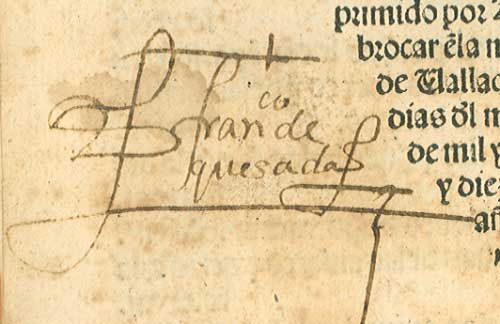 primido por
brocar ẽla
de Ualladolid
dias ðl
de mil y
y diez
añ
fran^co de
quesada